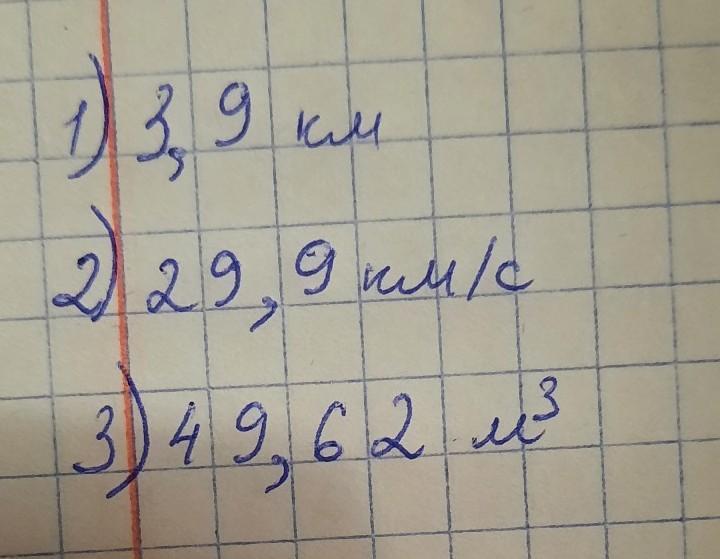 1) 3,9 км
2) 29,9 км/с
3) 49,62 м³